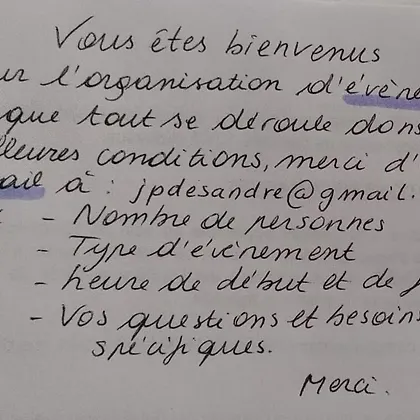 Vous êtes bienvenus
l'organisation d'évène
que tout se déroule dans
lleures conditions, merci d'
ail à : jpdesandre@gmail.
- Nombre de personnes
- Type d'évènement
- heure de début et de f
- Vos questions et besoins
spécifiques.
Merci.